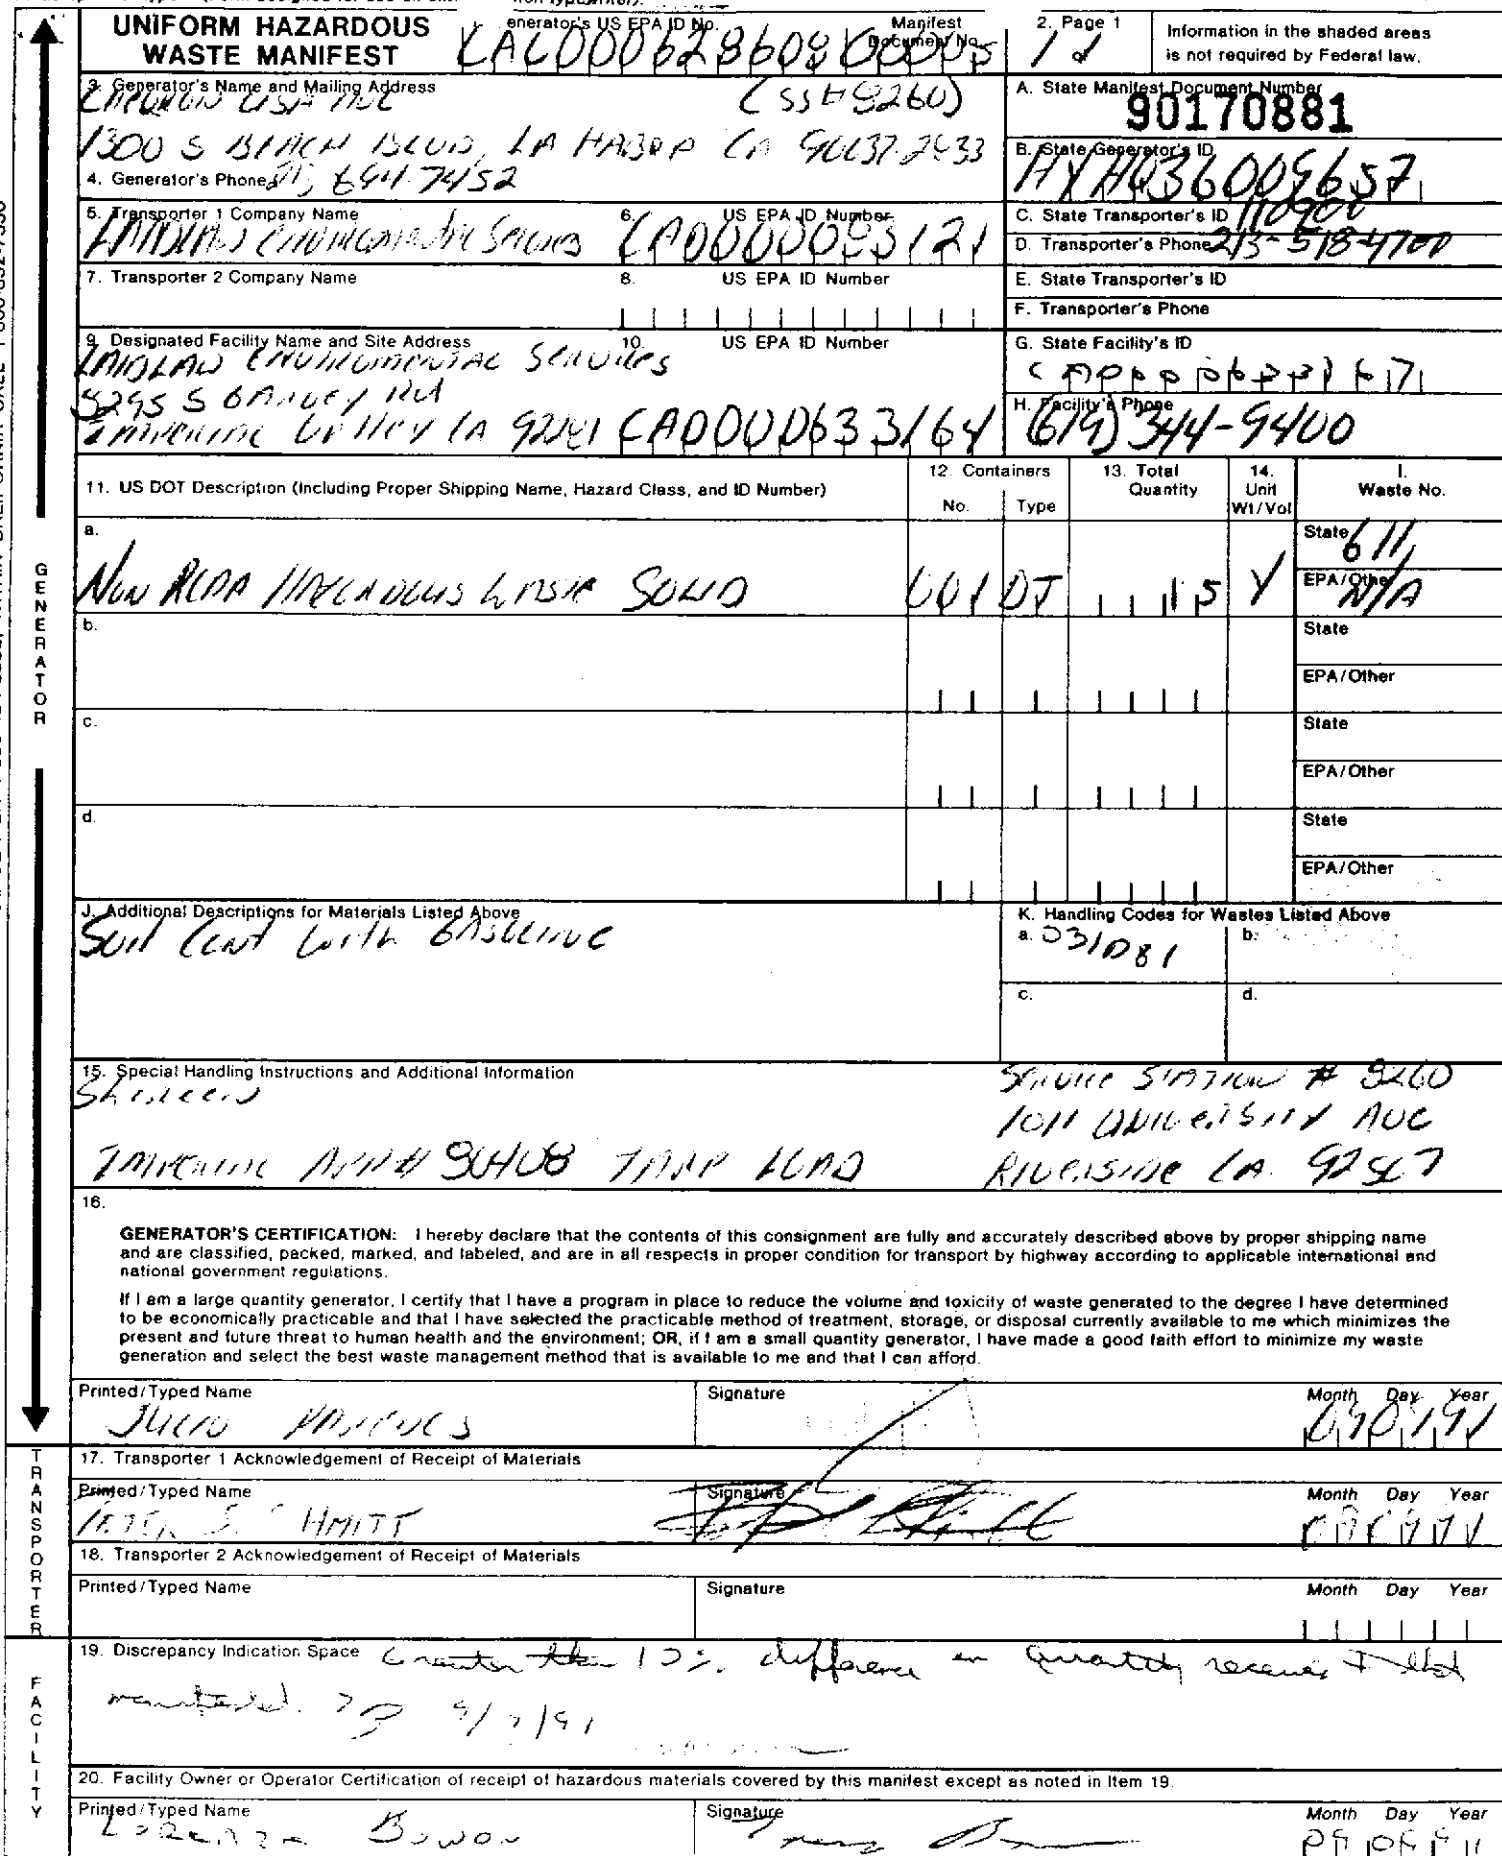 UNIFORM HAZARDOUS
WASTE MANIFEST
enerator's US EPA ID No.
Manifest
Document No.
2. Page 1
Information in the shaded areas
is not required by Federal law.
3. Generator's Name and Mailing Address
(SS# 9260)
1300 S BEACH BLVD, LA HABRA CA
4. Generator's Phone
694-7452
A. State Manifest Document Number
90170881
B. State Generator's ID
HYHQ36009657
5. Transporter 1 Company Name
LAIDLAW ENVIRONMENTAL SERVICES
6. US EPA ID Number
CAD000083121
C. State Transporter's ID
D. Transporter's Phone 213-518-4700
7. Transporter 2 Company Name
8. US EPA ID Number
E. State Transporter's ID
F. Transporter's Phone
9. Designated Facility Name and Site Address
LAIDLAW ENVIRONMENTAL SERVICES
10. US EPA ID Number
CAD000633164
G. State Facility's ID
H. Facility's Phone
(619) 344-9400
11. US DOT Description (Including Proper Shipping Name, Hazard Class, and ID Number)
12. Containers
No.
Type
13. Total
Quantity
14.
Unit
Wt/Vol
I.
Waste No.
a.
NON RCRA HAZARDOUS WASTE SOLID
001 DT 15 Y
State 611
EPA/Other
N/A
b.
State
EPA/Other
c.
State
EPA/Other
d.
State
EPA/Other
J. Additional Descriptions for Materials Listed Above
Soil Cont with GASOLINE
K. Handling Codes for Wastes Listed Above
a. 03/D81
b.
c.
d.
15. Special Handling Instructions and Additional Information
SERVICE STATION # 9260
1011 UNIVERSITY AVE
IMPERIAL APP# TARP LOAD
RIVERSIDE CA. 92507
16.
GENERATOR'S CERTIFICATION: I hereby declare that the contents of this consignment are fully and accurately described above by proper shipping name
and are classified, packed, marked, and labeled, and are in all respects in proper condition for transport by highway according to applicable international and
national government regulations.
If I am a large quantity generator, I certify that I have a program in place to reduce the volume and toxicity of waste generated to the degree I have determined
to be economically practicable and that I have selected the practicable method of treatment, storage, or disposal currently available to me which minimizes the
present and future threat to human health and the environment; OR, if I am a small quantity generator, I have made a good faith effort to minimize my waste
generation and select the best waste management method that is available to me and that I can afford.
Printed/Typed Name
Signature
Month Day Year
17. Transporter 1 Acknowledgement of Receipt of Materials
Printed/Typed Name
PETER SCHMITT
Signature
Month Day Year
18. Transporter 2 Acknowledgement of Receipt of Materials
Printed/Typed Name
Signature
Month Day Year
19. Discrepancy Indication Space Greater than 10% difference in quantity
20. Facility Owner or Operator Certification of receipt of hazardous materials covered by this manifest except as noted in Item 19.
Printed/Typed Name
Signature
Month Day Year
GENERATOR
TRANSPORTER
FACILITY